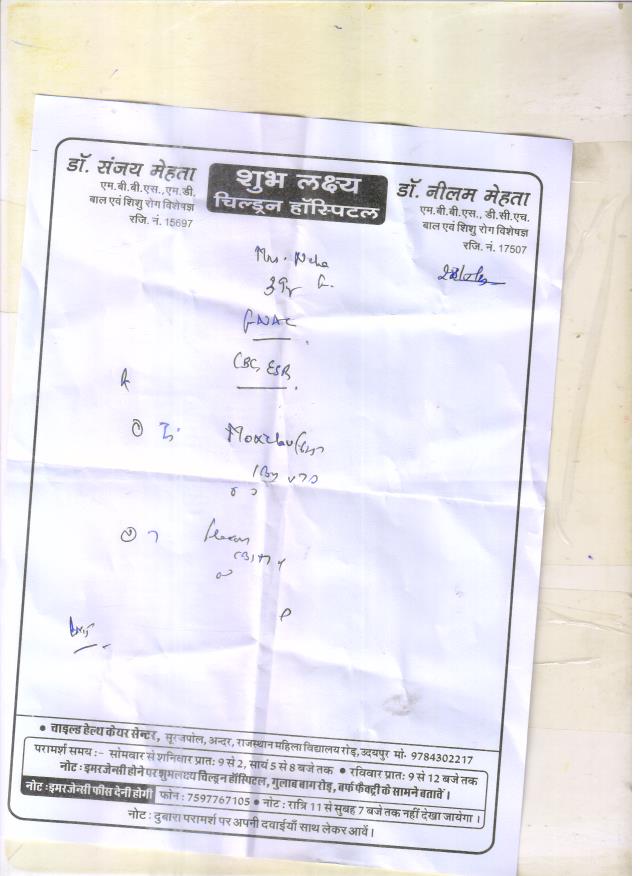 डॉ. संजय मेहता
एम.बी.बी.एस., एम.डी.
बाल एवं शिशु रोग विशेषज्ञ
रजि. नं. 15697
शुभ लक्ष्य
चिल्ड्रन हॉस्पिटल
डॉ. नीलम मेहता
एम.बी.बी.एस., डी.सी.एच.
बाल एवं शिशु रोग विशेषज्ञ
रजि. नं. 17507
Mrs. Neha
FNAC
CBC ESR
① 
②
• चाइल्ड हेल्थ केयर सेन्टर, सूरजपोल, अन्दर, राजस्थान महिला विद्यालय रोड़, उदयपुर मो. 9784302217
परामर्श समय :- सोमवार से शनिवार प्रात: 9 से 2, सायं 5 से 8 बजे तक • रविवार प्रात: 9 से 12 बजे तक
नोट: इमरजेन्सी होने पर शुभलक्ष्य चिल्ड्रन हॉस्पिटल, गुलाब बाग रोड़, बर्फ फैक्ट्री के सामने बतावें।
नोट: इमरजेन्सी फीस देनी होगी फोन : 7597767105 • नोट: रात्रि 11 से सुबह 7 बजे तक नहीं देखा जायेगा।
नोट: दुबारा परामर्श पर अपनी दवाईयाँ साथ लेकर आवें।